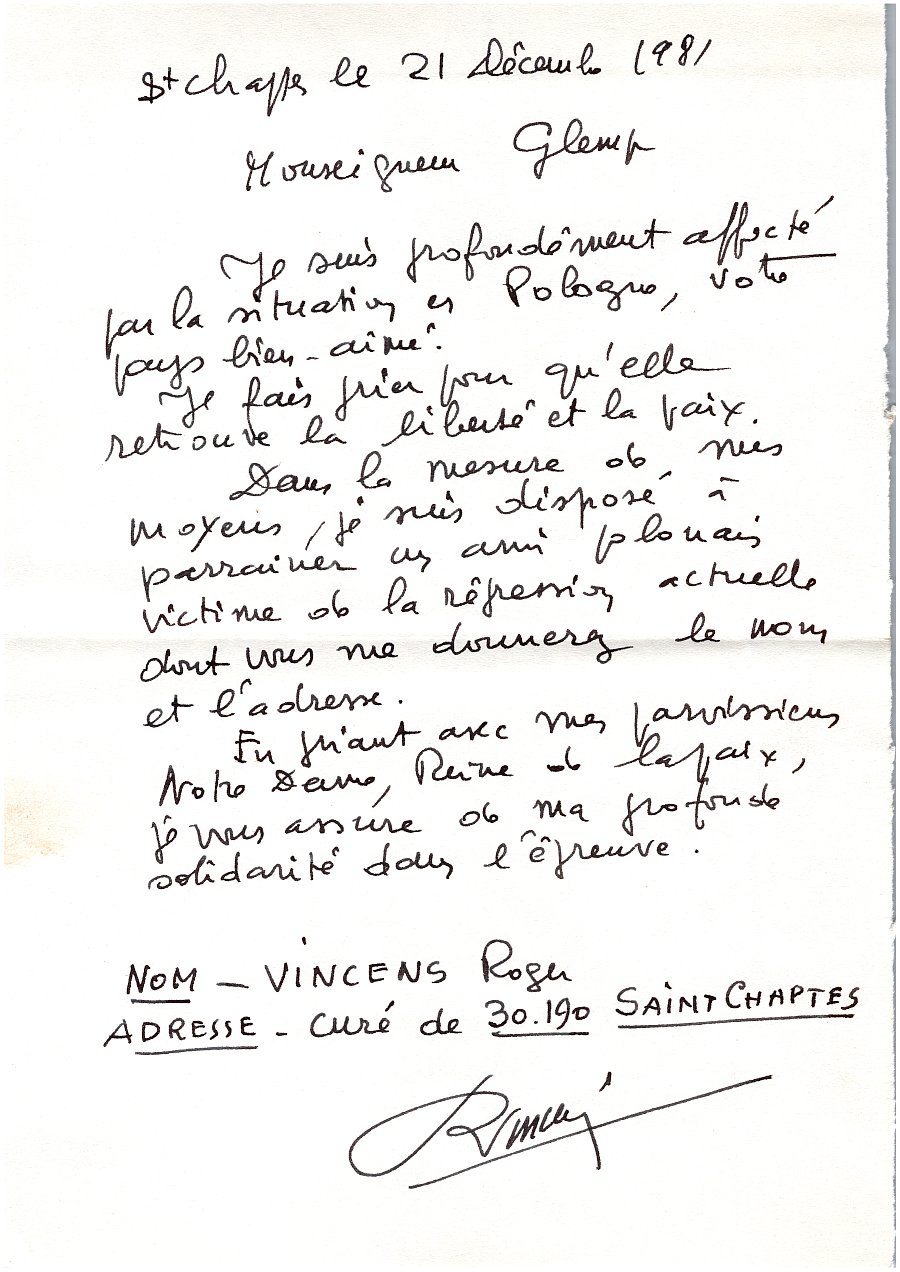 St Chaptes le 21 Décembre 1981
Monseigneur Glemp
Je suis profondément affecté
par la situation en Pologne, votre
pays bien-aimé.
Je fais prier pour qu'elle
retrouve la liberté et la paix.
Dans la mesure de mes
moyens, je suis disposé à
parrainer un ami plonais
victime de la répression actuelle
dont vous me donnerez le nom
et l'adresse.
En priant avec mes paroissiens
Notre Dame, Reine de la paix,
je vous assure de ma profonde
solidarité dans l'épreuve.
NOM - VINCENS Roger
ADRESSE - curé de 30.190 SAINT CHAPTES
RVincens